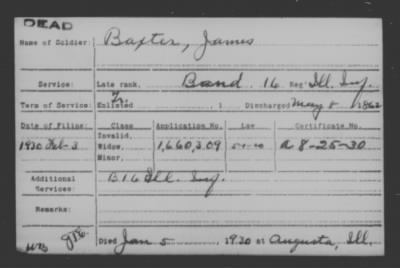 DEAD
Name of Soldier: Baxter, James
Service: Late rank, Band 16 Reg't Ill. Inf.
Term of Service: Enlisted Fr. , 1 Discharged May 8, 1862
Date of Filing: Class Application No. Law Certificate No.
Invalid,
1930 Feb-3 Widow, 1,660,309 A 8-25-30
Minor,
Additional B 16 Ill. Inf.
Services:
Remarks:
Died Jan 5, 1930 at Augusta, Ill.